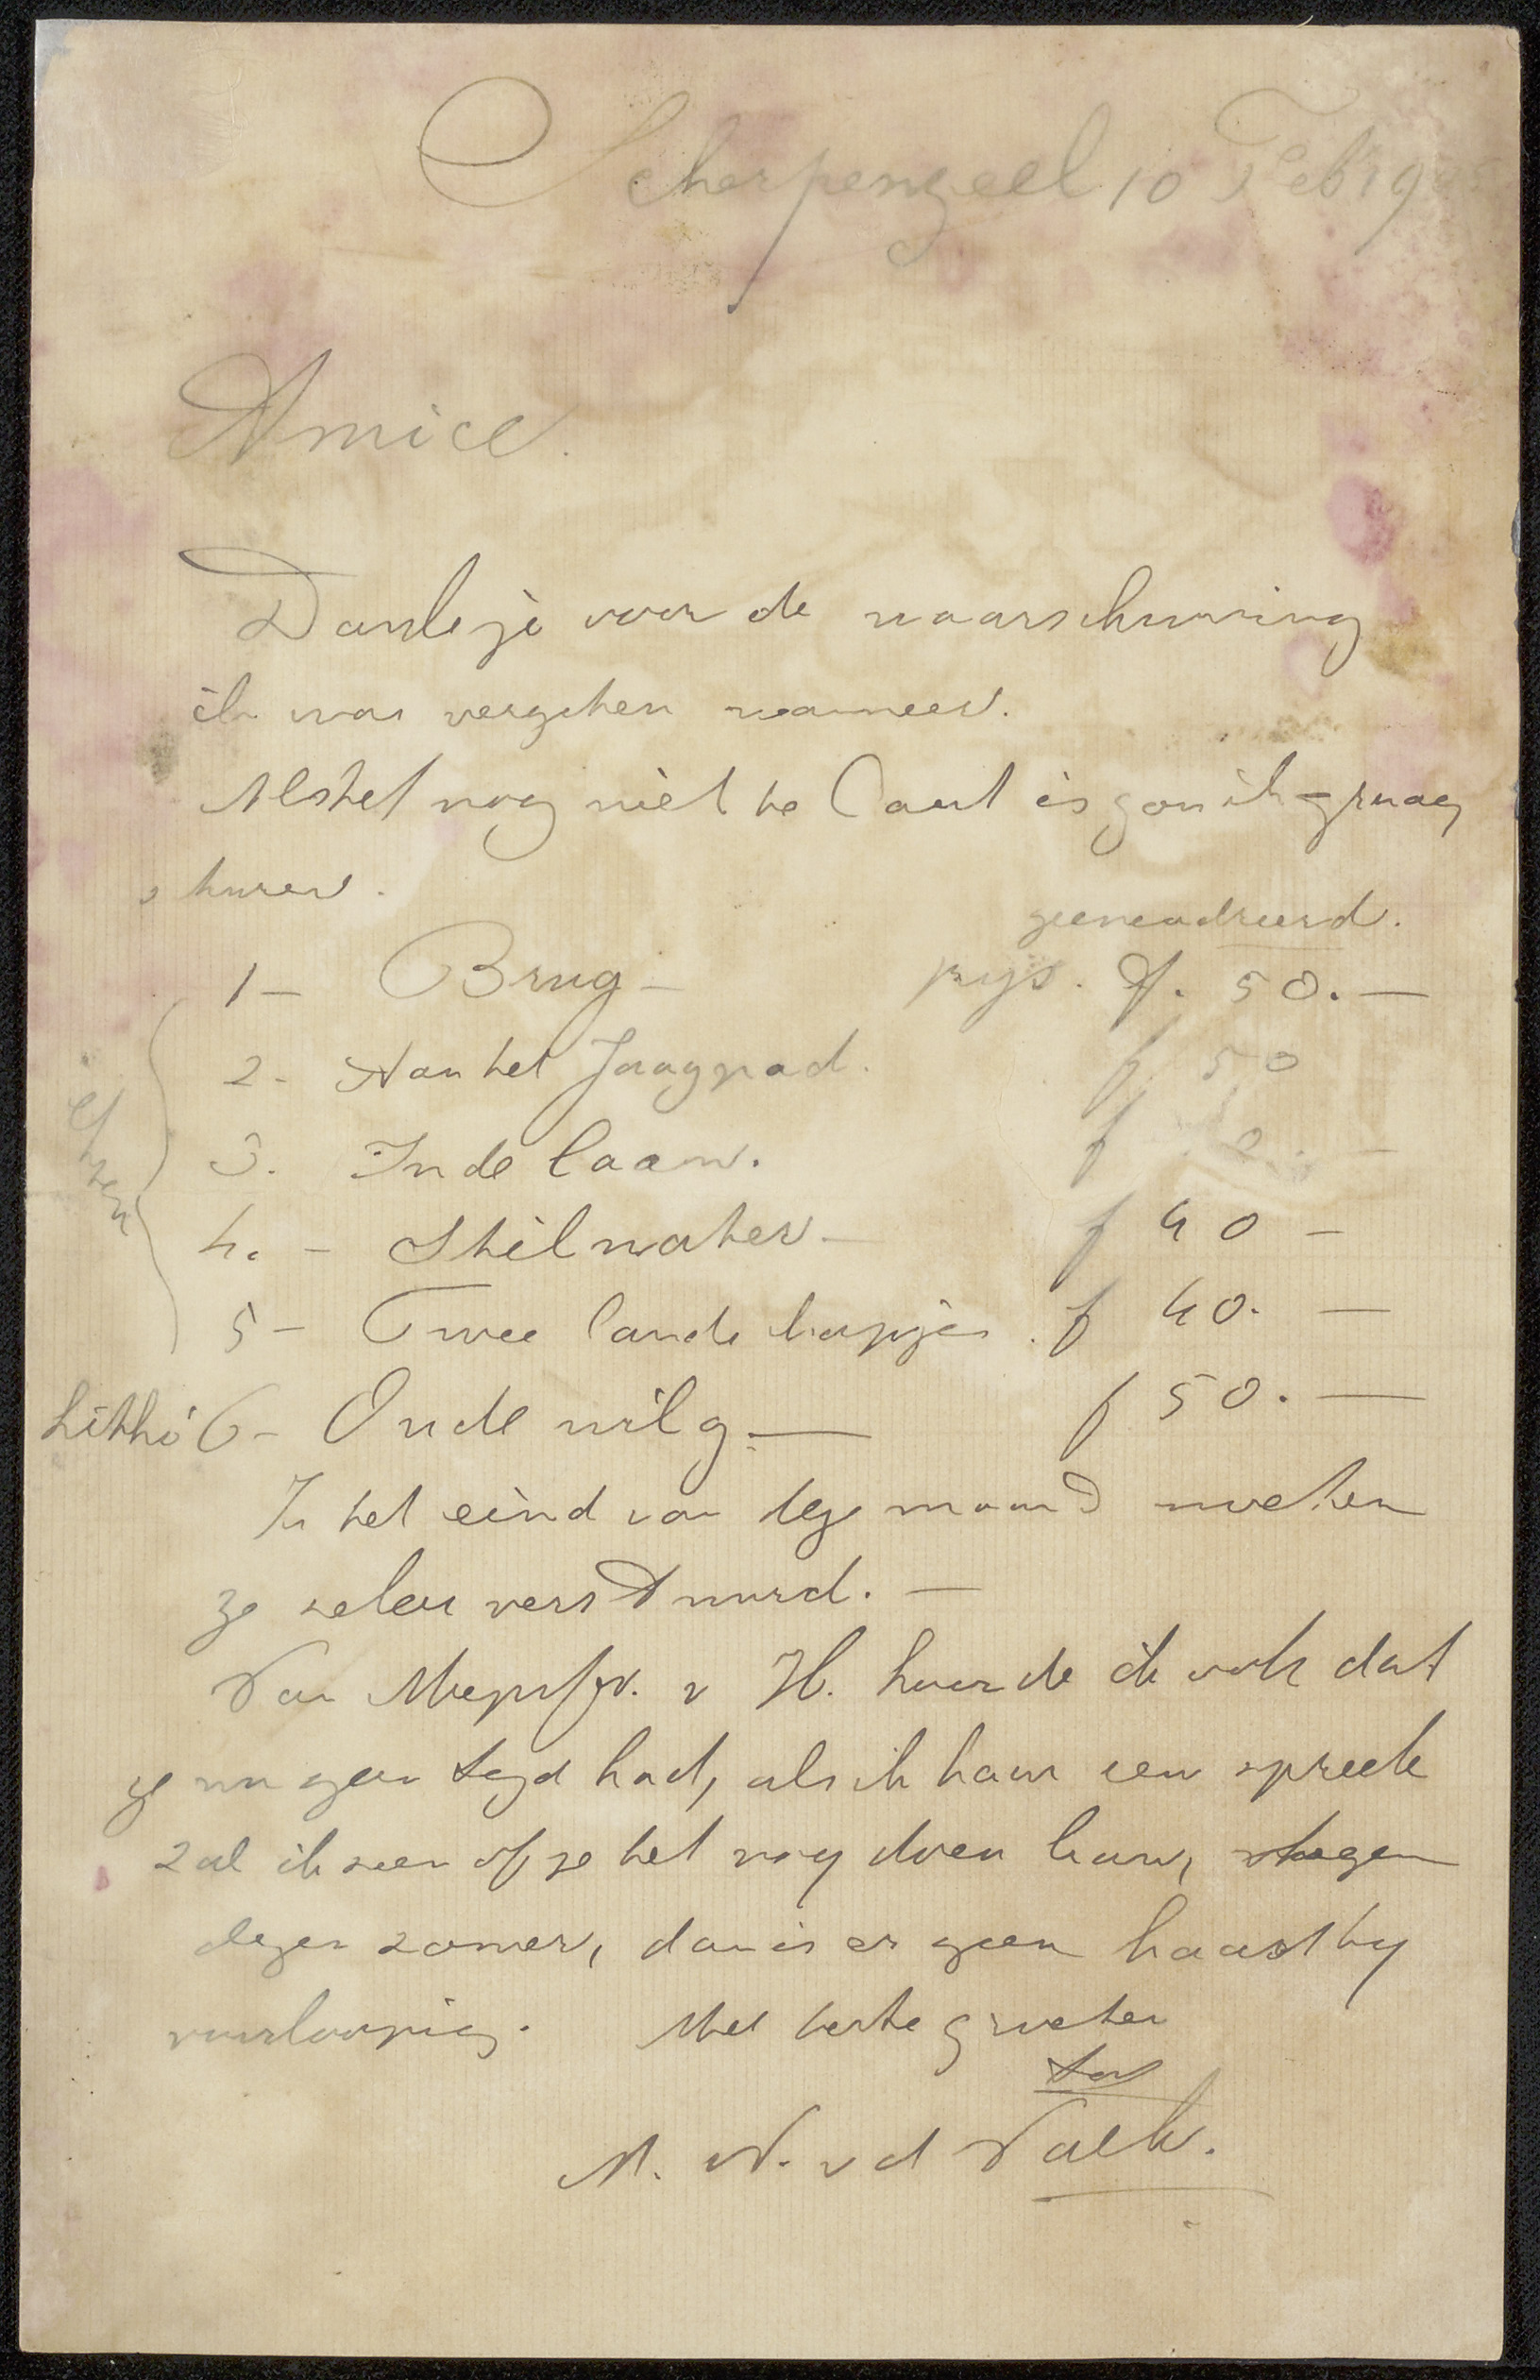 Scherpenzeel 10 Feb 19
Amice.
Dank je voor de waarschuwing
ik was vergeten wanneer.
Als het nog niet te laat is zou ik graag
sturen.
geencadreerd.
1 — Brug — prijs. f. 50. —
2 - Aan het Jaagpad. f 50
3. In de laan. f 0. —
etsen
4. - Stil water — f 40 —
5 - Twee landschapjes. f 40. —
Litho 6 - Oude wilg. — f 50. —
In het eind van deze maand moeten
ze zeker verstuurd. —
Van Mejufr. v H. hoorde ik ook dat
ze nu geen tyd had, als ik haar een spreek
zal ik zien of ze het nog doen kan, tegen
dezen zomer, dan is er geen haast by
voorloopig. Met beste groeten
tov
M. W. v d Valk.